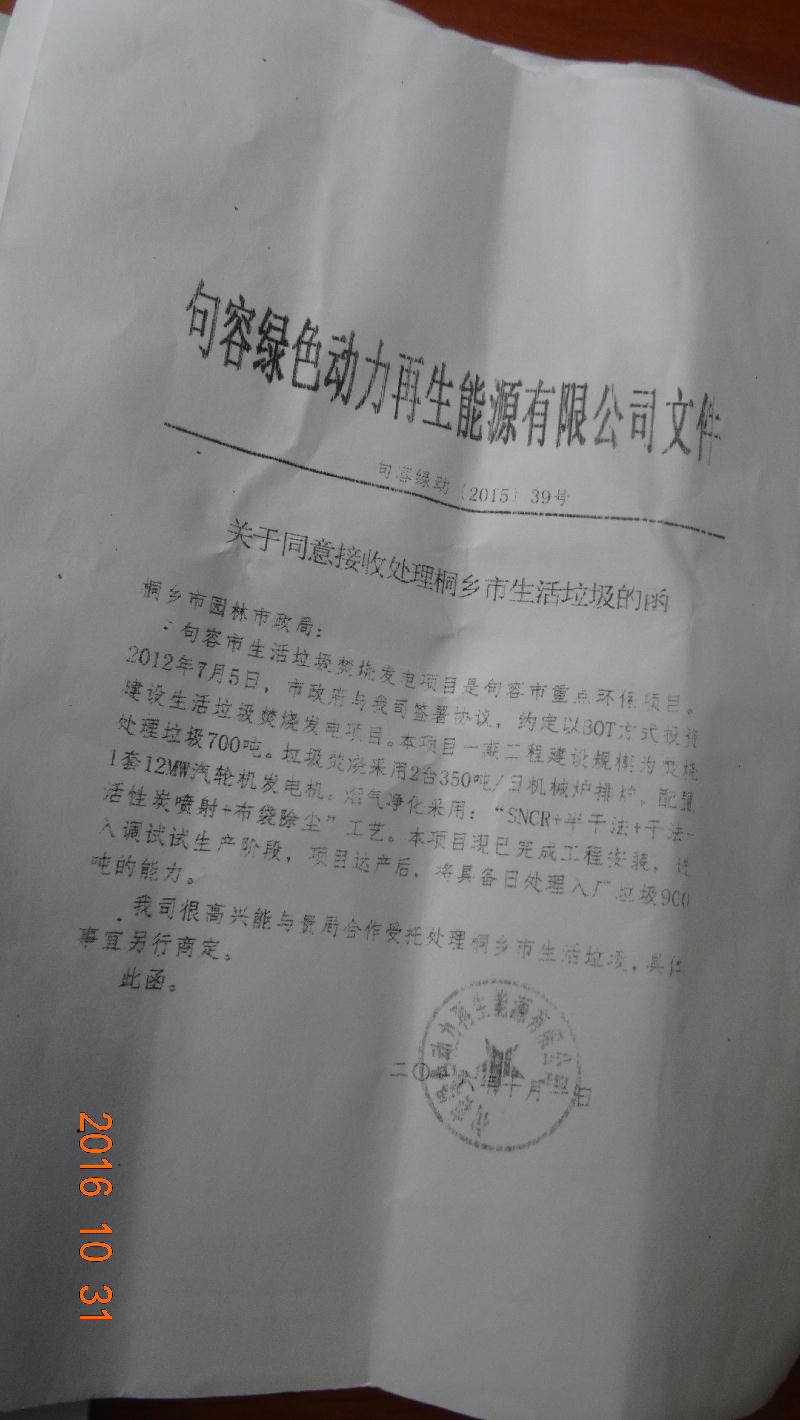 句容绿色动力再生能源有限公司文件
句容绿动〔2015〕39号
关于同意接收处理桐乡市生活垃圾的函
桐乡市园林市政局：
句容市生活垃圾焚烧发电项目是句容市重点环保项目。
2012年7月5日，市政府与我司签署协议，约定以BOT方式投资
建设生活垃圾焚烧发电项目。本项目一期工程建设规模为焚烧
处理垃圾700吨。垃圾焚烧采用2台350吨/日机械炉排炉，配置
1套12MW汽轮机发电机。烟气净化采用：“SNCR+半干法+干法+
活性炭喷射+布袋除尘”工艺。本项目现已完成工程安装，进
入调试试生产阶段，项目达产后，将具备日处理入厂垃圾900
吨的能力。
我司很高兴能与贵局合作受托处理桐乡市生活垃圾，具体
事宜另行商定。
此函。
动力再生能源有限公司
二〇 月 日
2016 10 31